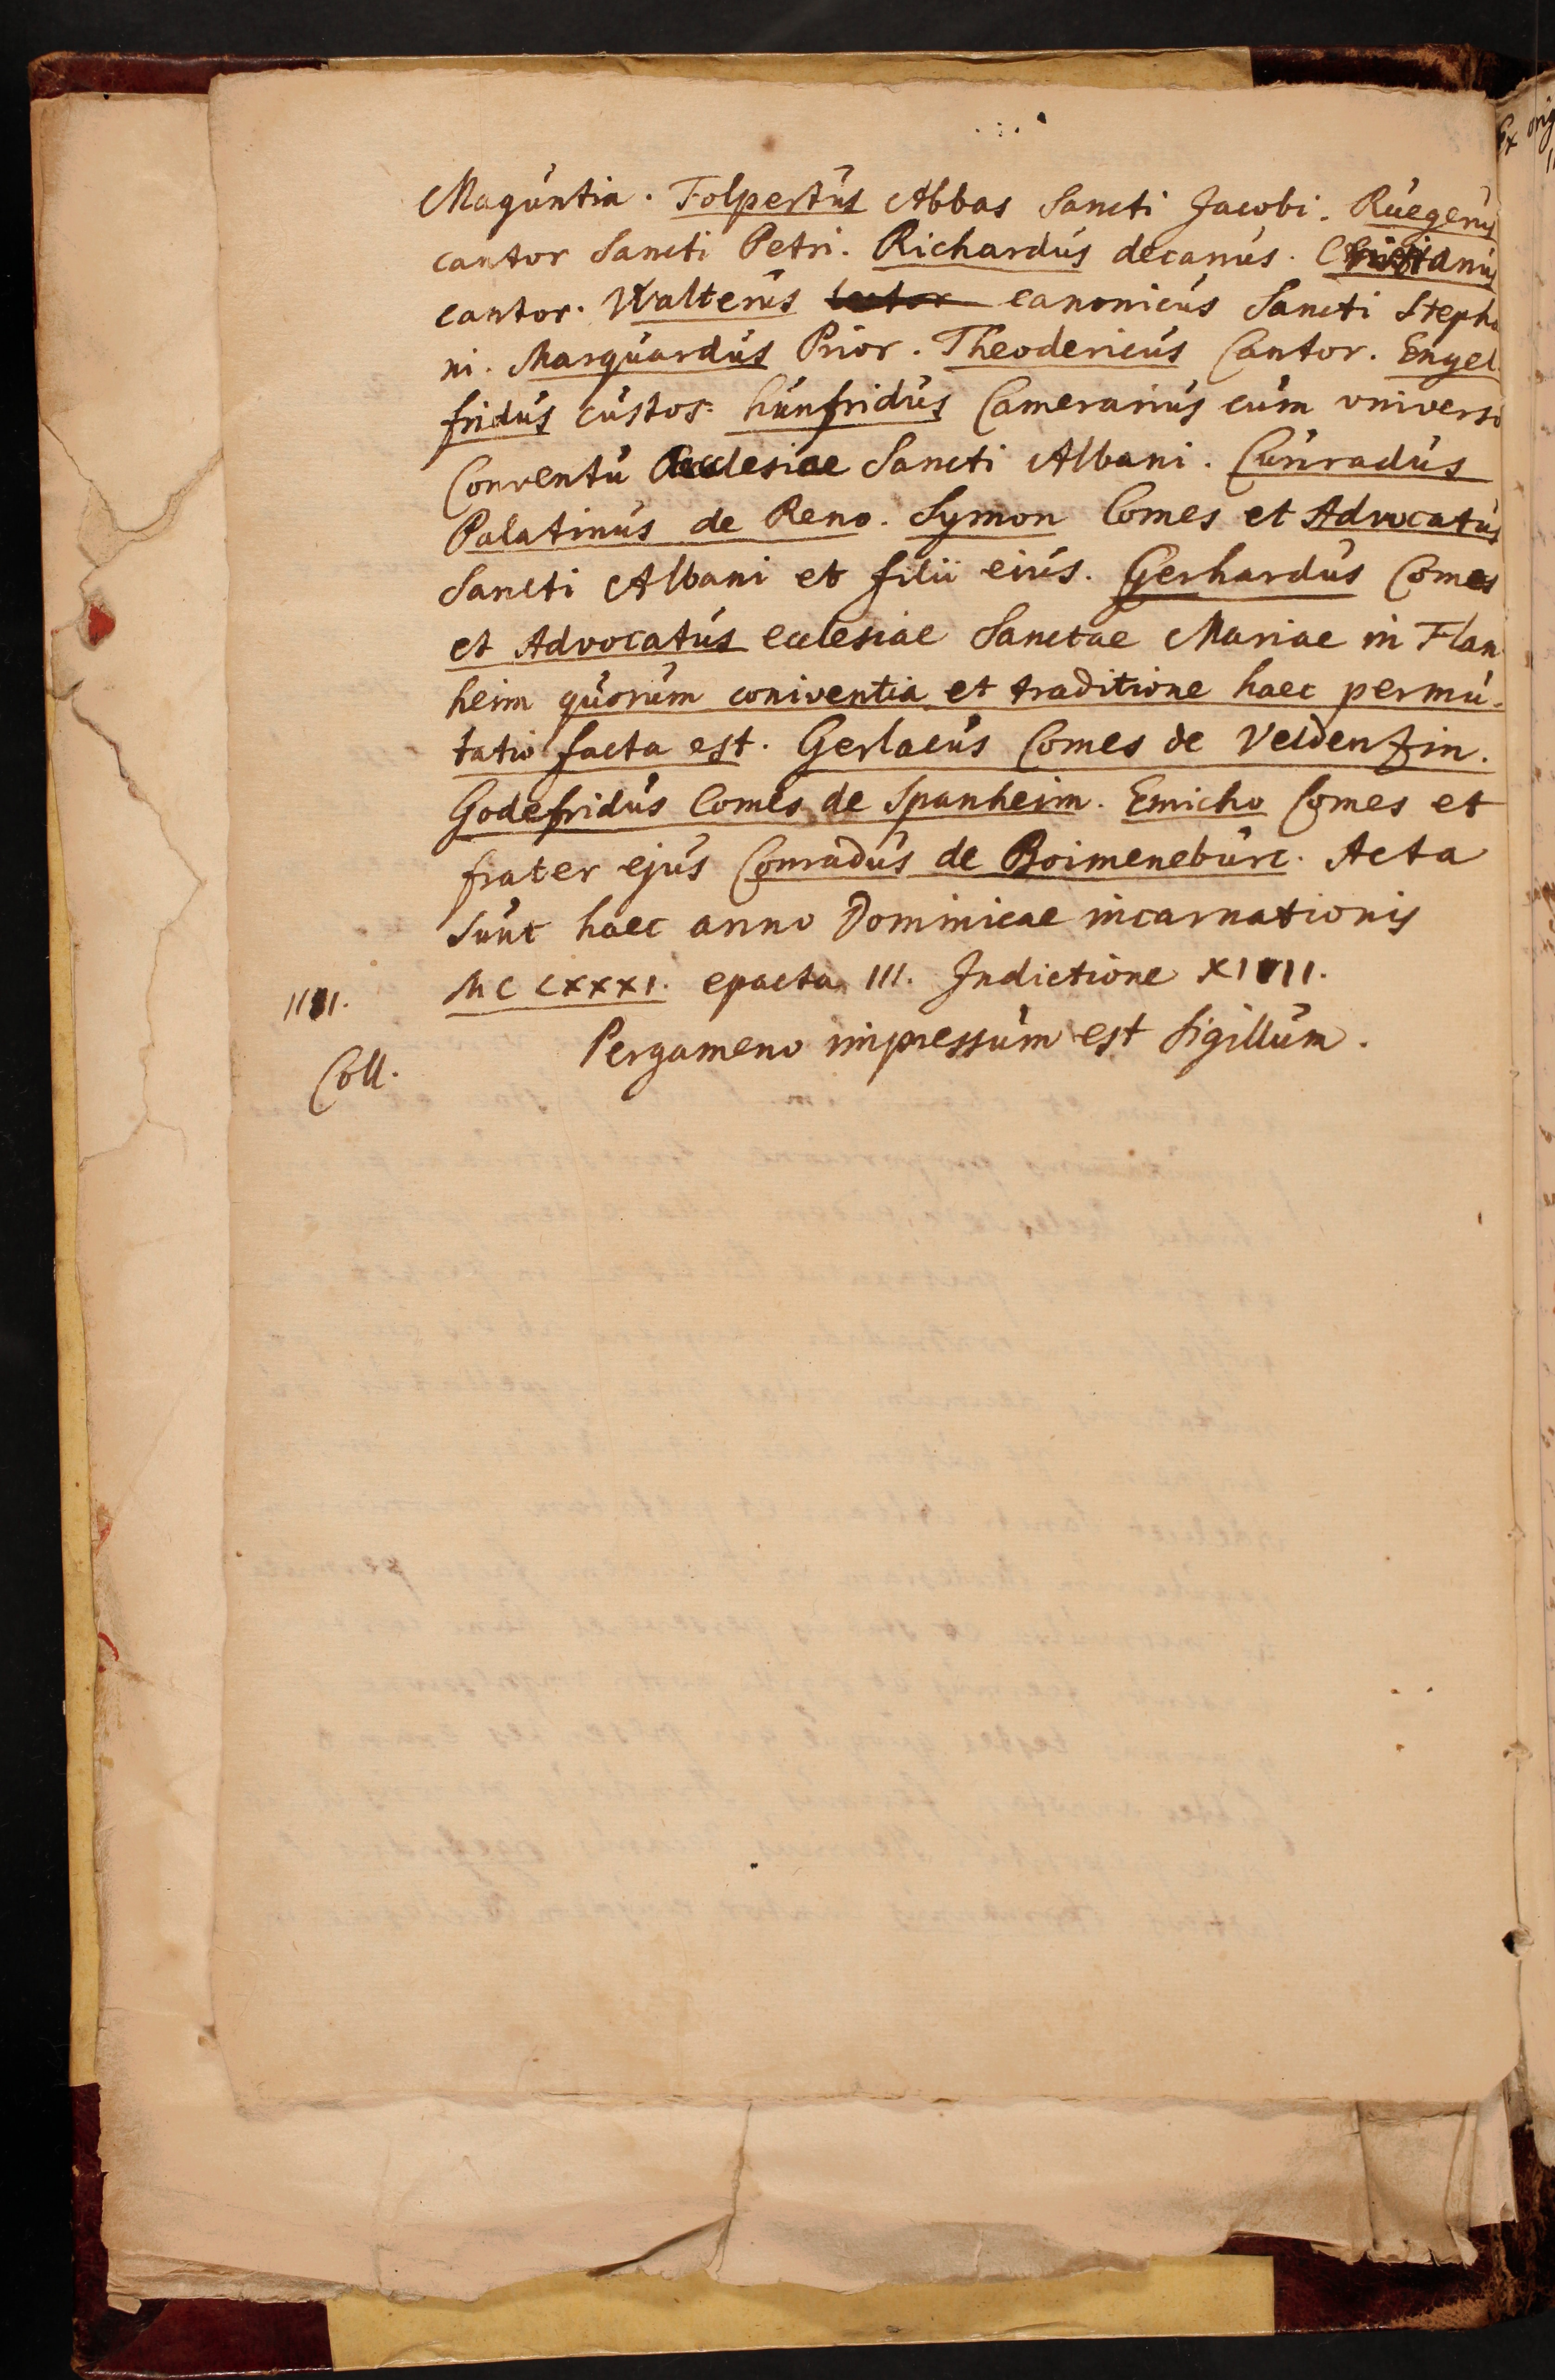 Maguntia. Folpertus Abbas Sancti Jacobi. Ruegerus
cantor Sancti Petri. Richardus decanus. Christianus
cantor. Walterus lector canonicus Sancti Stepha
ni. Marquardus Prior. Theodericus Cantor. Engel-
fridus custos. hunfridus Camerarius cum universo
Conventu Ecclesiae Sancti Albani. Cunradus
Palatinus de Reno. Symon Comes et Advocatus
Sancti Albani et filii eius. Gerhardus Comes
et Advocatus ecclesiae Sanctae Mariae in Flan
heim quorum coniventia et traditione haec permu-
tatio facta est. Gerlacus Comes de Veldenzin.
Godefridus Comes de Spanheim. Emicho Comes et
frater ejus Conradus de Boimeneburc. Acta
sunt haec anno Dominicae incarnationis
MCLXXXI. epacta III. Indictione XIIII.
IIII.
Pergameno impressum est Sigillum.
Coll.